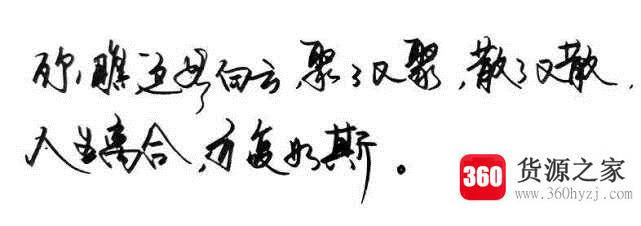 你瞧这些白云,聚了又聚,散了又散,
人生离合,亦复如斯。
360 货源之家
www.360hyzj.com